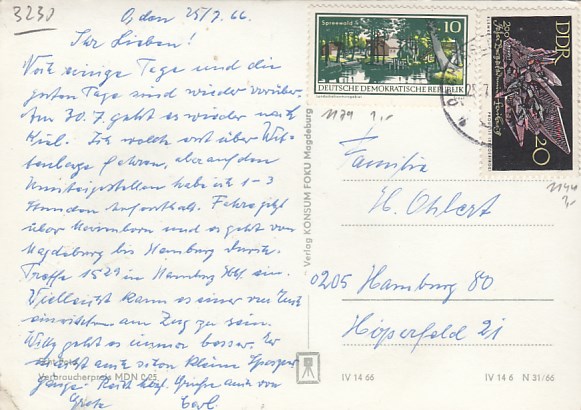 3230
O, den 25/7.66.
Ihr Lieben!
Noch einige Tage und die
guten Tage sind wieder vorüber.
Am 30.7. geht es wieder nach
Kiel. Ich wollte erst über Wit-
tenberge fahren, aber auf den
Umsteigestellen habe ich 1-3
Stunden Aufenthalt. Fahre jetzt
über und es geht von
Magdeburg bis Hamburg durch.
Treffe 1529 in Hamburg Hbf. ein.
Vielleicht kann es einer von Euch
einrichten am Zug zu sein.
Willy geht es immer besser. Er
macht auch schon kleine Spazier-
gänge. Recht herzl. Grüße auch von
Grete
Verbraucherpreis MDN 0,05
Verlag KONSUM FOKU Magdeburg
Spreewald
10
DEUTSCHE DEMOKRATISCHE REPUBLIK
Landschaftsschutzgebiet
DDR
20
1179 1,-
1144
Familie
H. Ohlert
0205 Hamburg 80
Höperfeld 21
IV 14 66
IV 14 6 N 31/66